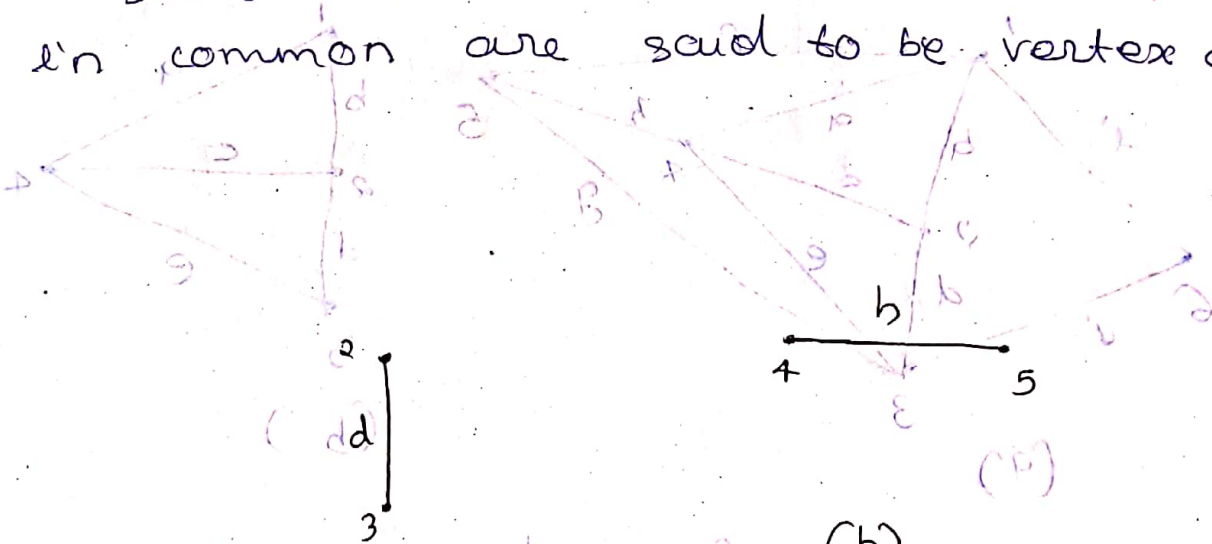 in common are said to be vertex
h
4 5
2
d
3
(b)